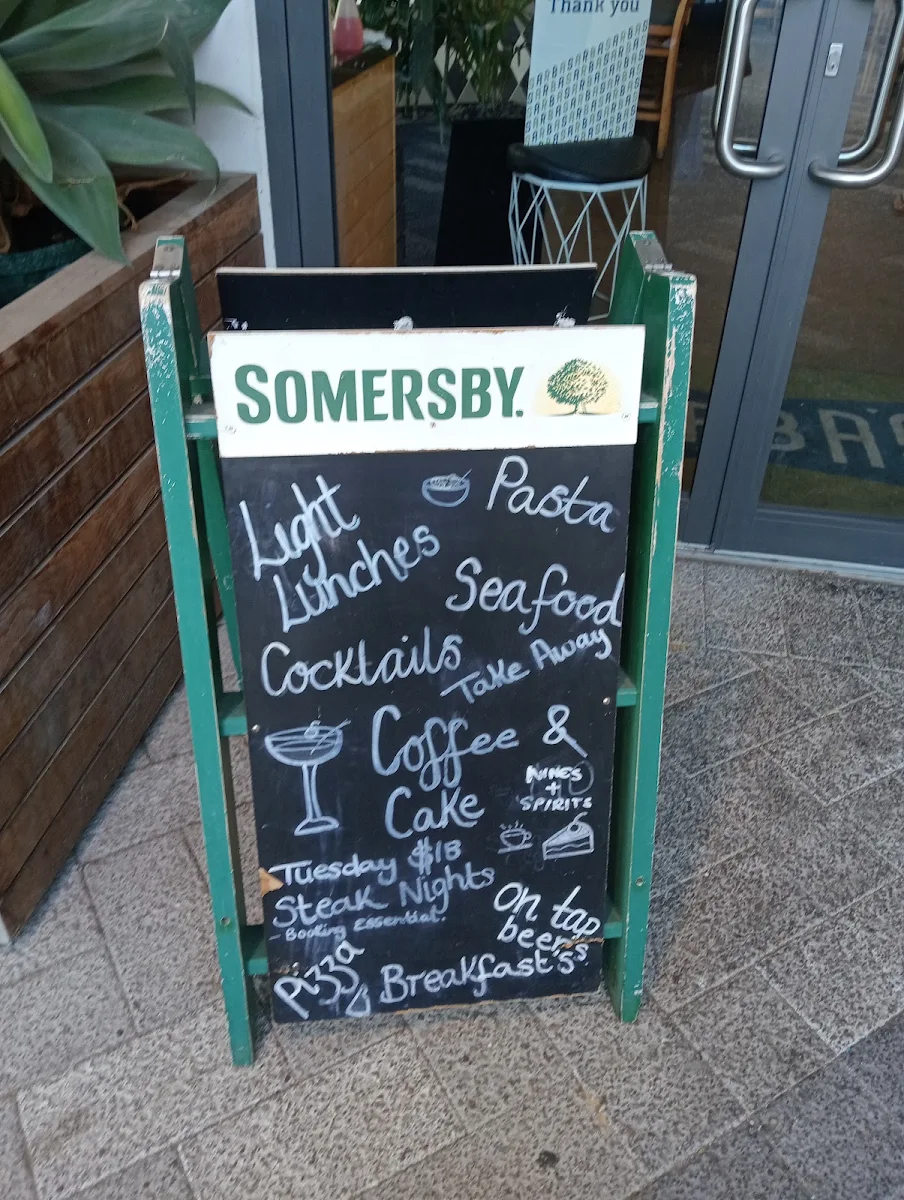 Thank you
SOMERSBY.
Light
Lunches
Pasta
Seafood
Take Away
Cocktails
Coffee &
Cake
WINES
+
SPIRITS
Tuesday $18
Steak Nights
- Booking Essential.
On tap
beers
Pizza
Breakfast's